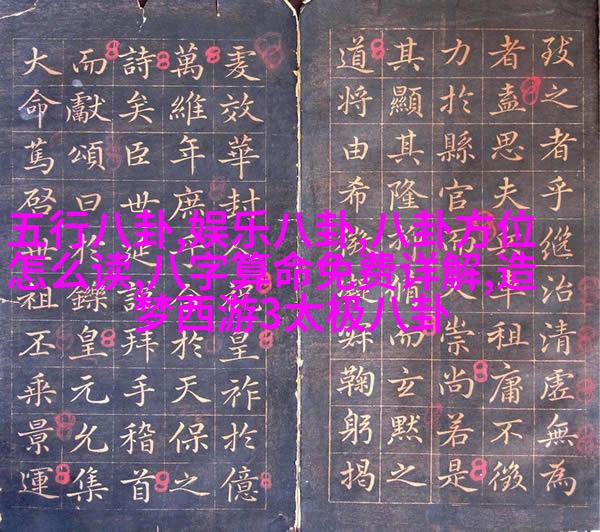 五行八卦,娱乐八卦,八卦方位
怎么读,八字算命免费详解,造
梦西游3太极八卦
致之者乎繼治清虛無為
者盍思夫祖庸不徵
力於縣官而崇尚若是
其顯其隆脩而玄默之
道將由希鞠躬揭
效華封皇祚於億
萬維年庶於天保之
詩矣臣世拜手稽首
而獻頌曰於鑠皇元允集
大命篤啓世祖丕乘景運